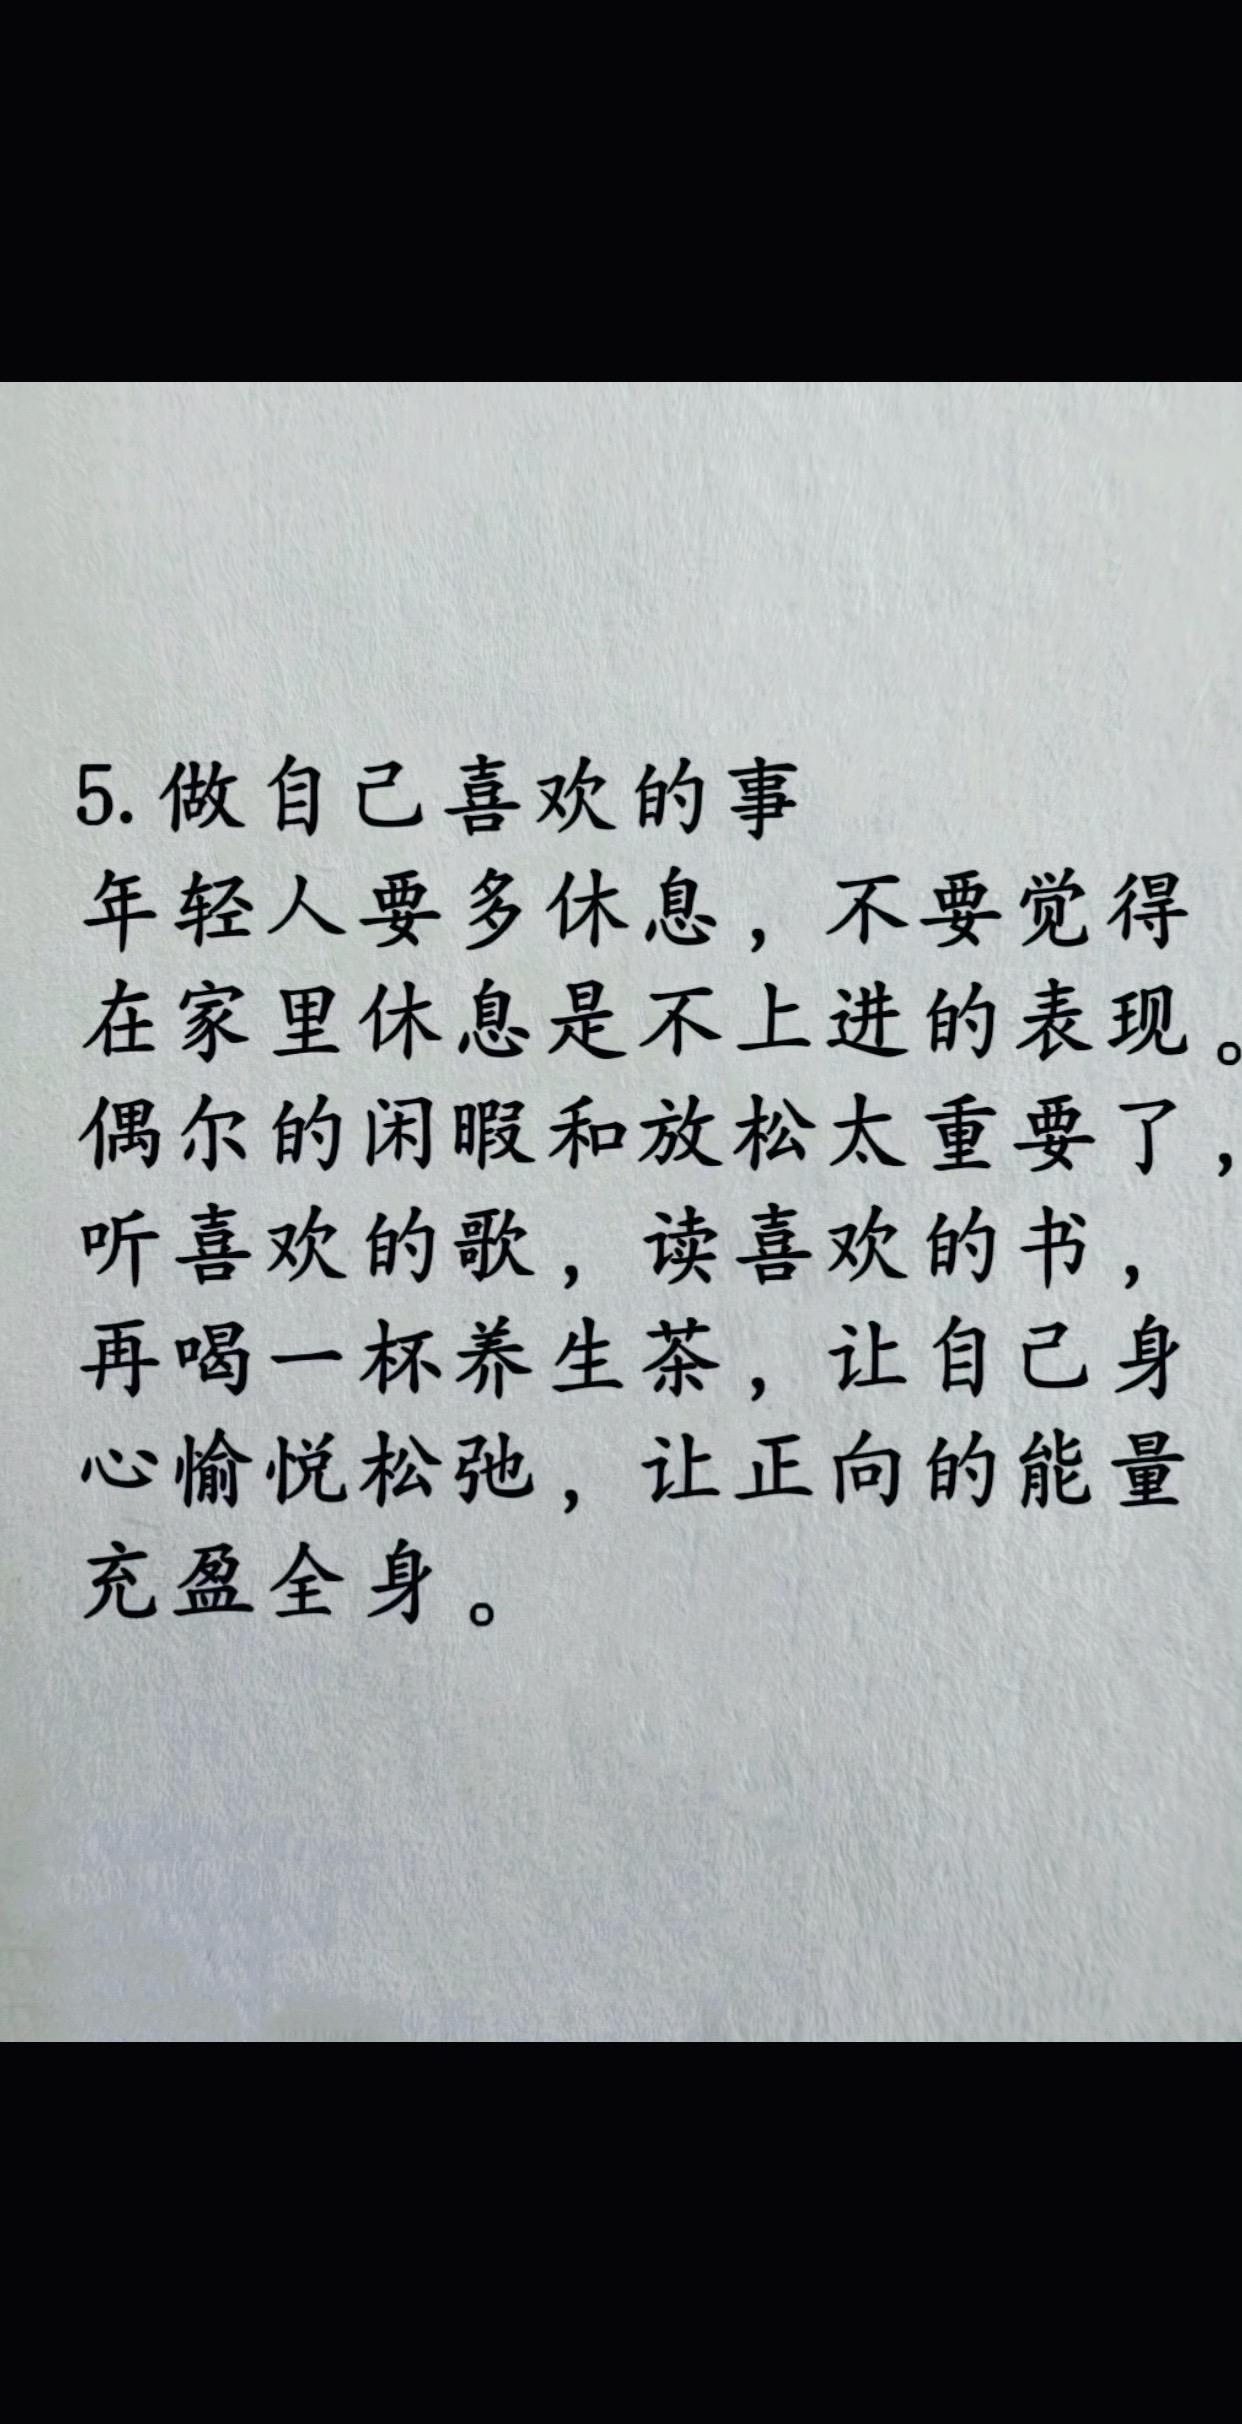 5.做自己喜欢的事
年轻人要多休息，不要觉得
在家里休息是不上进的表现。
偶尔的闲暇和放松太重要了，
听喜欢的歌，读喜欢的书，
再喝一杯养生茶，让自己身
心愉悦松弛，让正向的能量
充盈全身。